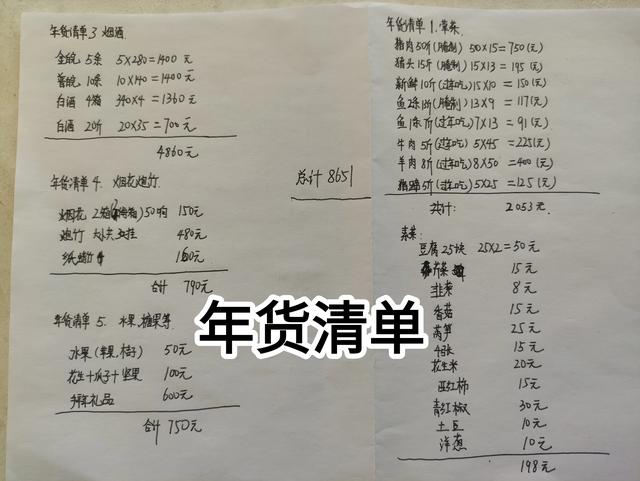 年货清单3.烟酒.
全皖 5条 5×280=1400 元
普皖 10条 10×140=1400元
白酒 4箱 340×4=1360元
白酒 20斤 20×35=700元
4860元
年货清单4. 烟花炮竹.
烟花 50响 150元
炮竹 480元
160元
合计 790元
年货清单5. 水果,糖果等
水果(苹果,桔子) 50元
花生+瓜子+坚果 100元
拜年礼品 600元
合计 750元
总计8651
年货清单1.荤菜.
猪肉50斤(腌制) 50×15=750(元)
猪头15斤(腌制) 15×13=195(元)
新鲜10斤(过年吃) 15×10=150(元)
鱼2条13斤(腌制) 13×9=117(元)
鱼1条7斤(过年吃) 7×13=91(元)
牛肉5斤(过年吃) 5×45=225(元)
羊肉8斤(过年吃) 8×50=400(元)
猪蹄5斤(过年吃) 5×25=125(元)
共计: 2053元.
素菜:
豆腐25块 25×2=50元
芹菜 15元
韭菜 8元
香菇 15元
莴笋 25元
千张 15元
花生米 20元
西红柿 15元
青红椒 30元
土豆 10元
洋葱 10元
198元
年货清单